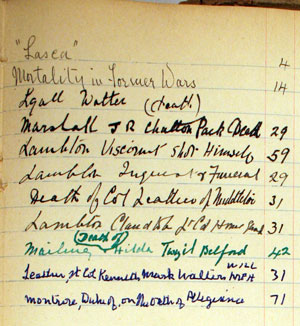 "Lasca" 4
Mortality in Former Wars 14
Lyall Walter (death)
Marshall J R Chatton Park Dead 29
Lambton Viscount Shot Himself 59
Lambton Inquest & Funeral 29
Death of Col Leather of Middleton 31
Lambton Claud Lt Col Home 31
Death of
Mailing Hilda Belford 42
WILL
Leather, Lt Col Kenneth Mark Walter 31
Montrose, Duke of, on the Oath of Allegiance 71